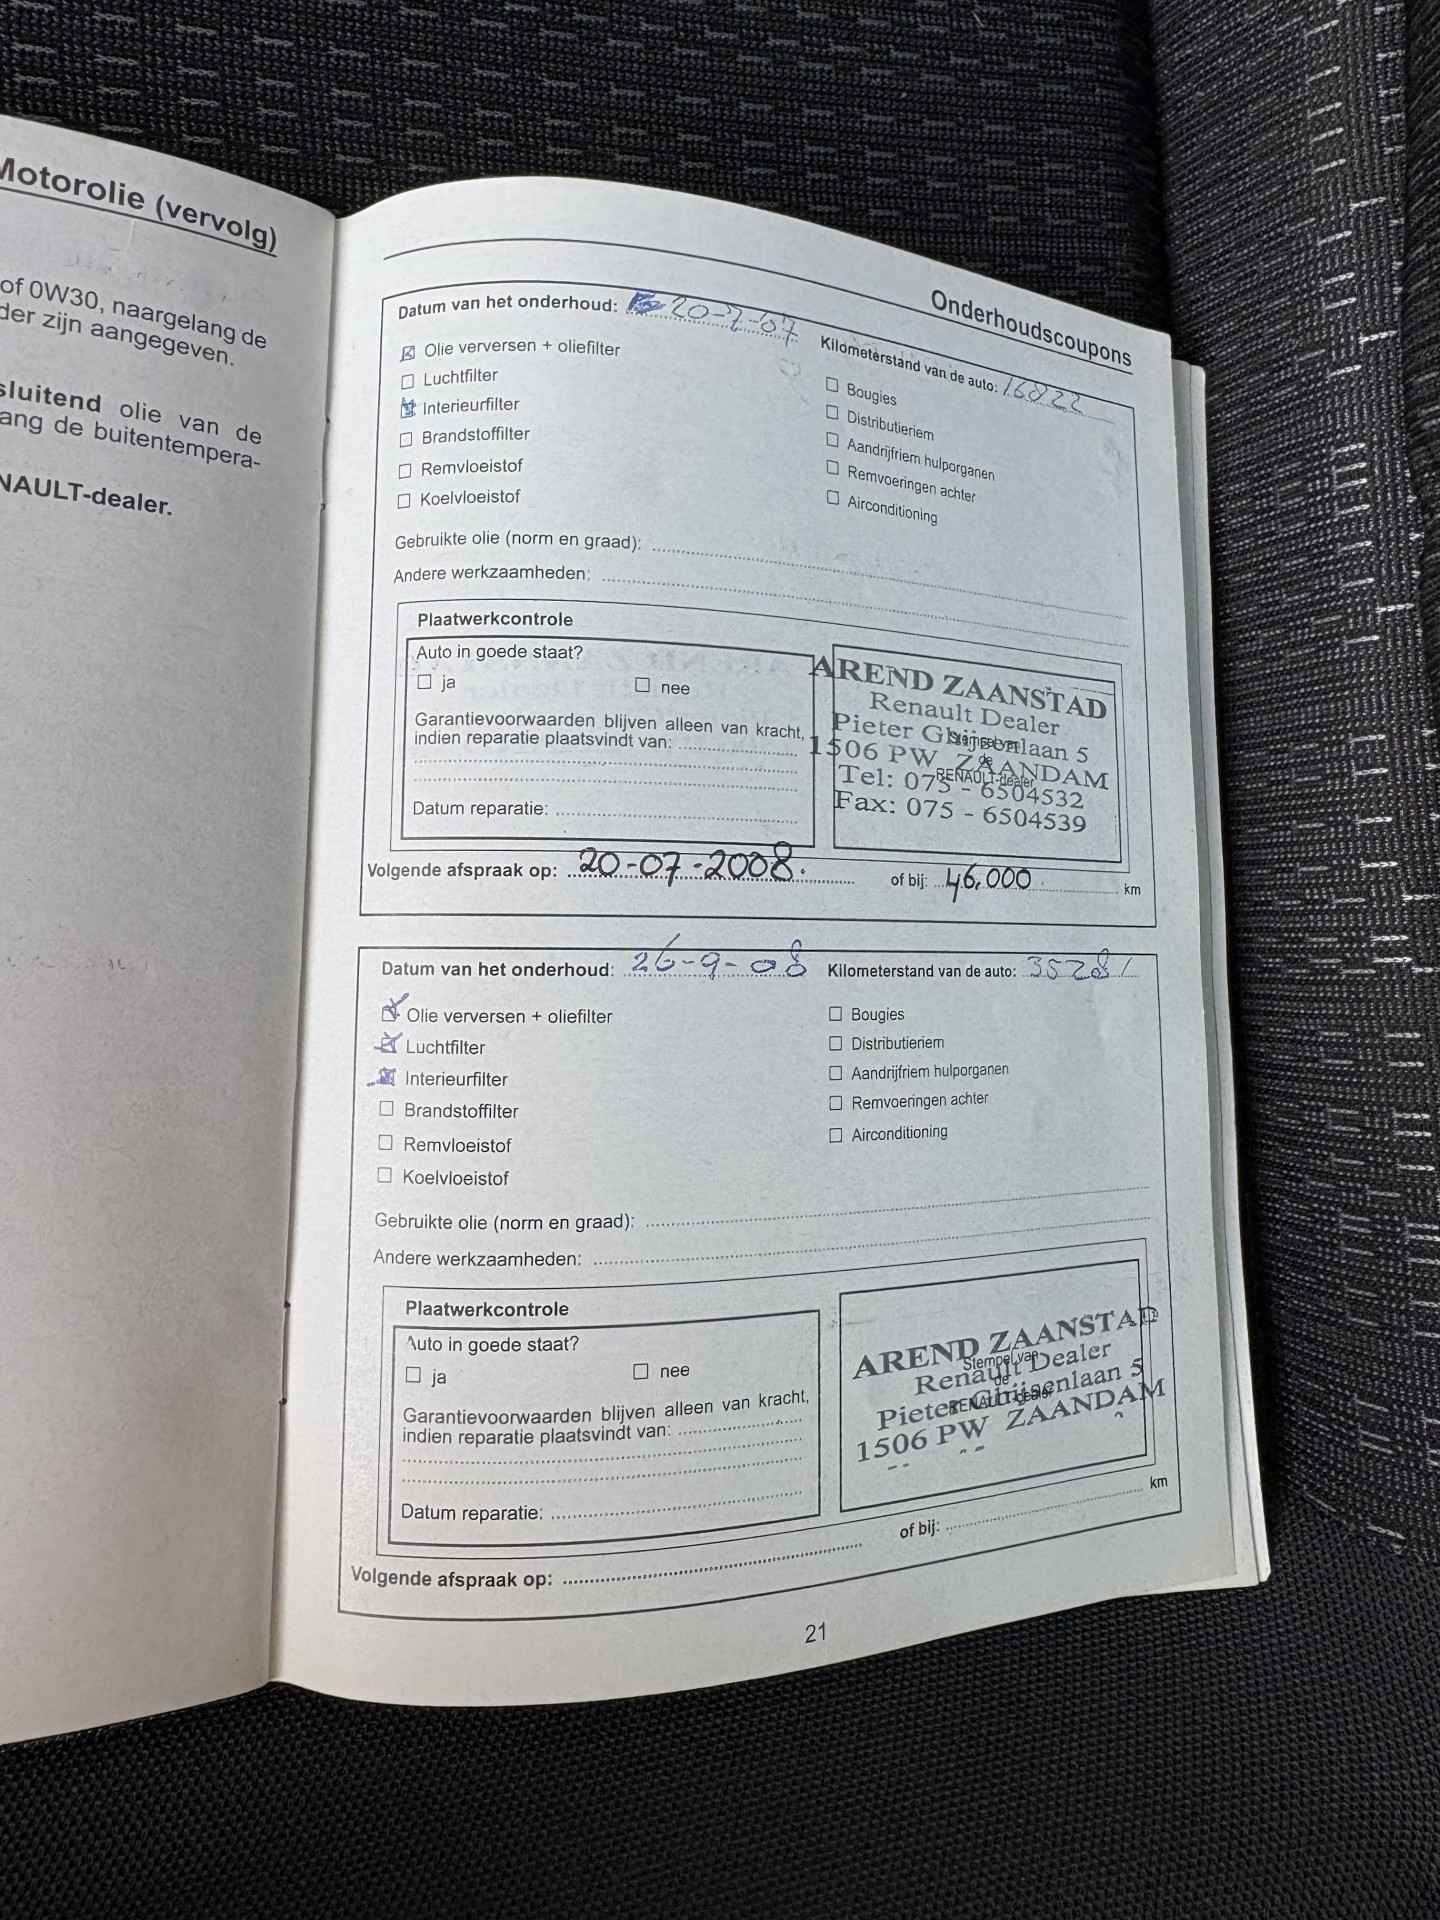 Motorolie (vervolg)
of 0W30, naargelang de
der zijn aangegeven.
sluitend olie van de
ang de buitentempera-
NAULT-dealer.
Onderhoudscoupons
Datum van het onderhoud: 20-7-07
Kilometerstand van de auto: 16822
Olie verversen + oliefilter
Luchtfilter
Interieurfilter
Brandstoffilter
Remvloeistof
Koelvloeistof
Bougies
Distributieriem
Aandrijfriem hulporganen
Remvoeringen achter
Airconditioning
Gebruikte olie (norm en graad):
Andere werkzaamheden:
Plaatwerkcontrole
Auto in goede staat?
ja nee
Garantievoorwaarden blijven alleen van kracht,
indien reparatie plaatsvindt van:
Datum reparatie:
AREND ZAANSTAD
Renault Dealer
Pieter Ghijsenlaan 5
1506 PW ZAANDAM
Tel: 075 - 6504532
Fax: 075 - 6504539
Stempel van
de
RENAULT-dealer
Volgende afspraak op: 20-07-2008. of bij: 46.000 km
Datum van het onderhoud: 26-9-08 Kilometerstand van de auto: 35281
Olie verversen + oliefilter
Luchtfilter
Interieurfilter
Brandstoffilter
Remvloeistof
Koelvloeistof
Bougies
Distributieriem
Aandrijfriem hulporganen
Remvoeringen achter
Airconditioning
Gebruikte olie (norm en graad):
Andere werkzaamheden:
Plaatwerkcontrole
Auto in goede staat?
ja nee
Garantievoorwaarden blijven alleen van kracht,
indien reparatie plaatsvindt van:
Datum reparatie:
AREND ZAANSTAD
Renault Dealer
Pieter Ghijsenlaan 5
1506 PW ZAANDAM
Stempel van
de
RENAULT-dealer
Volgende afspraak op: of bij: km
21